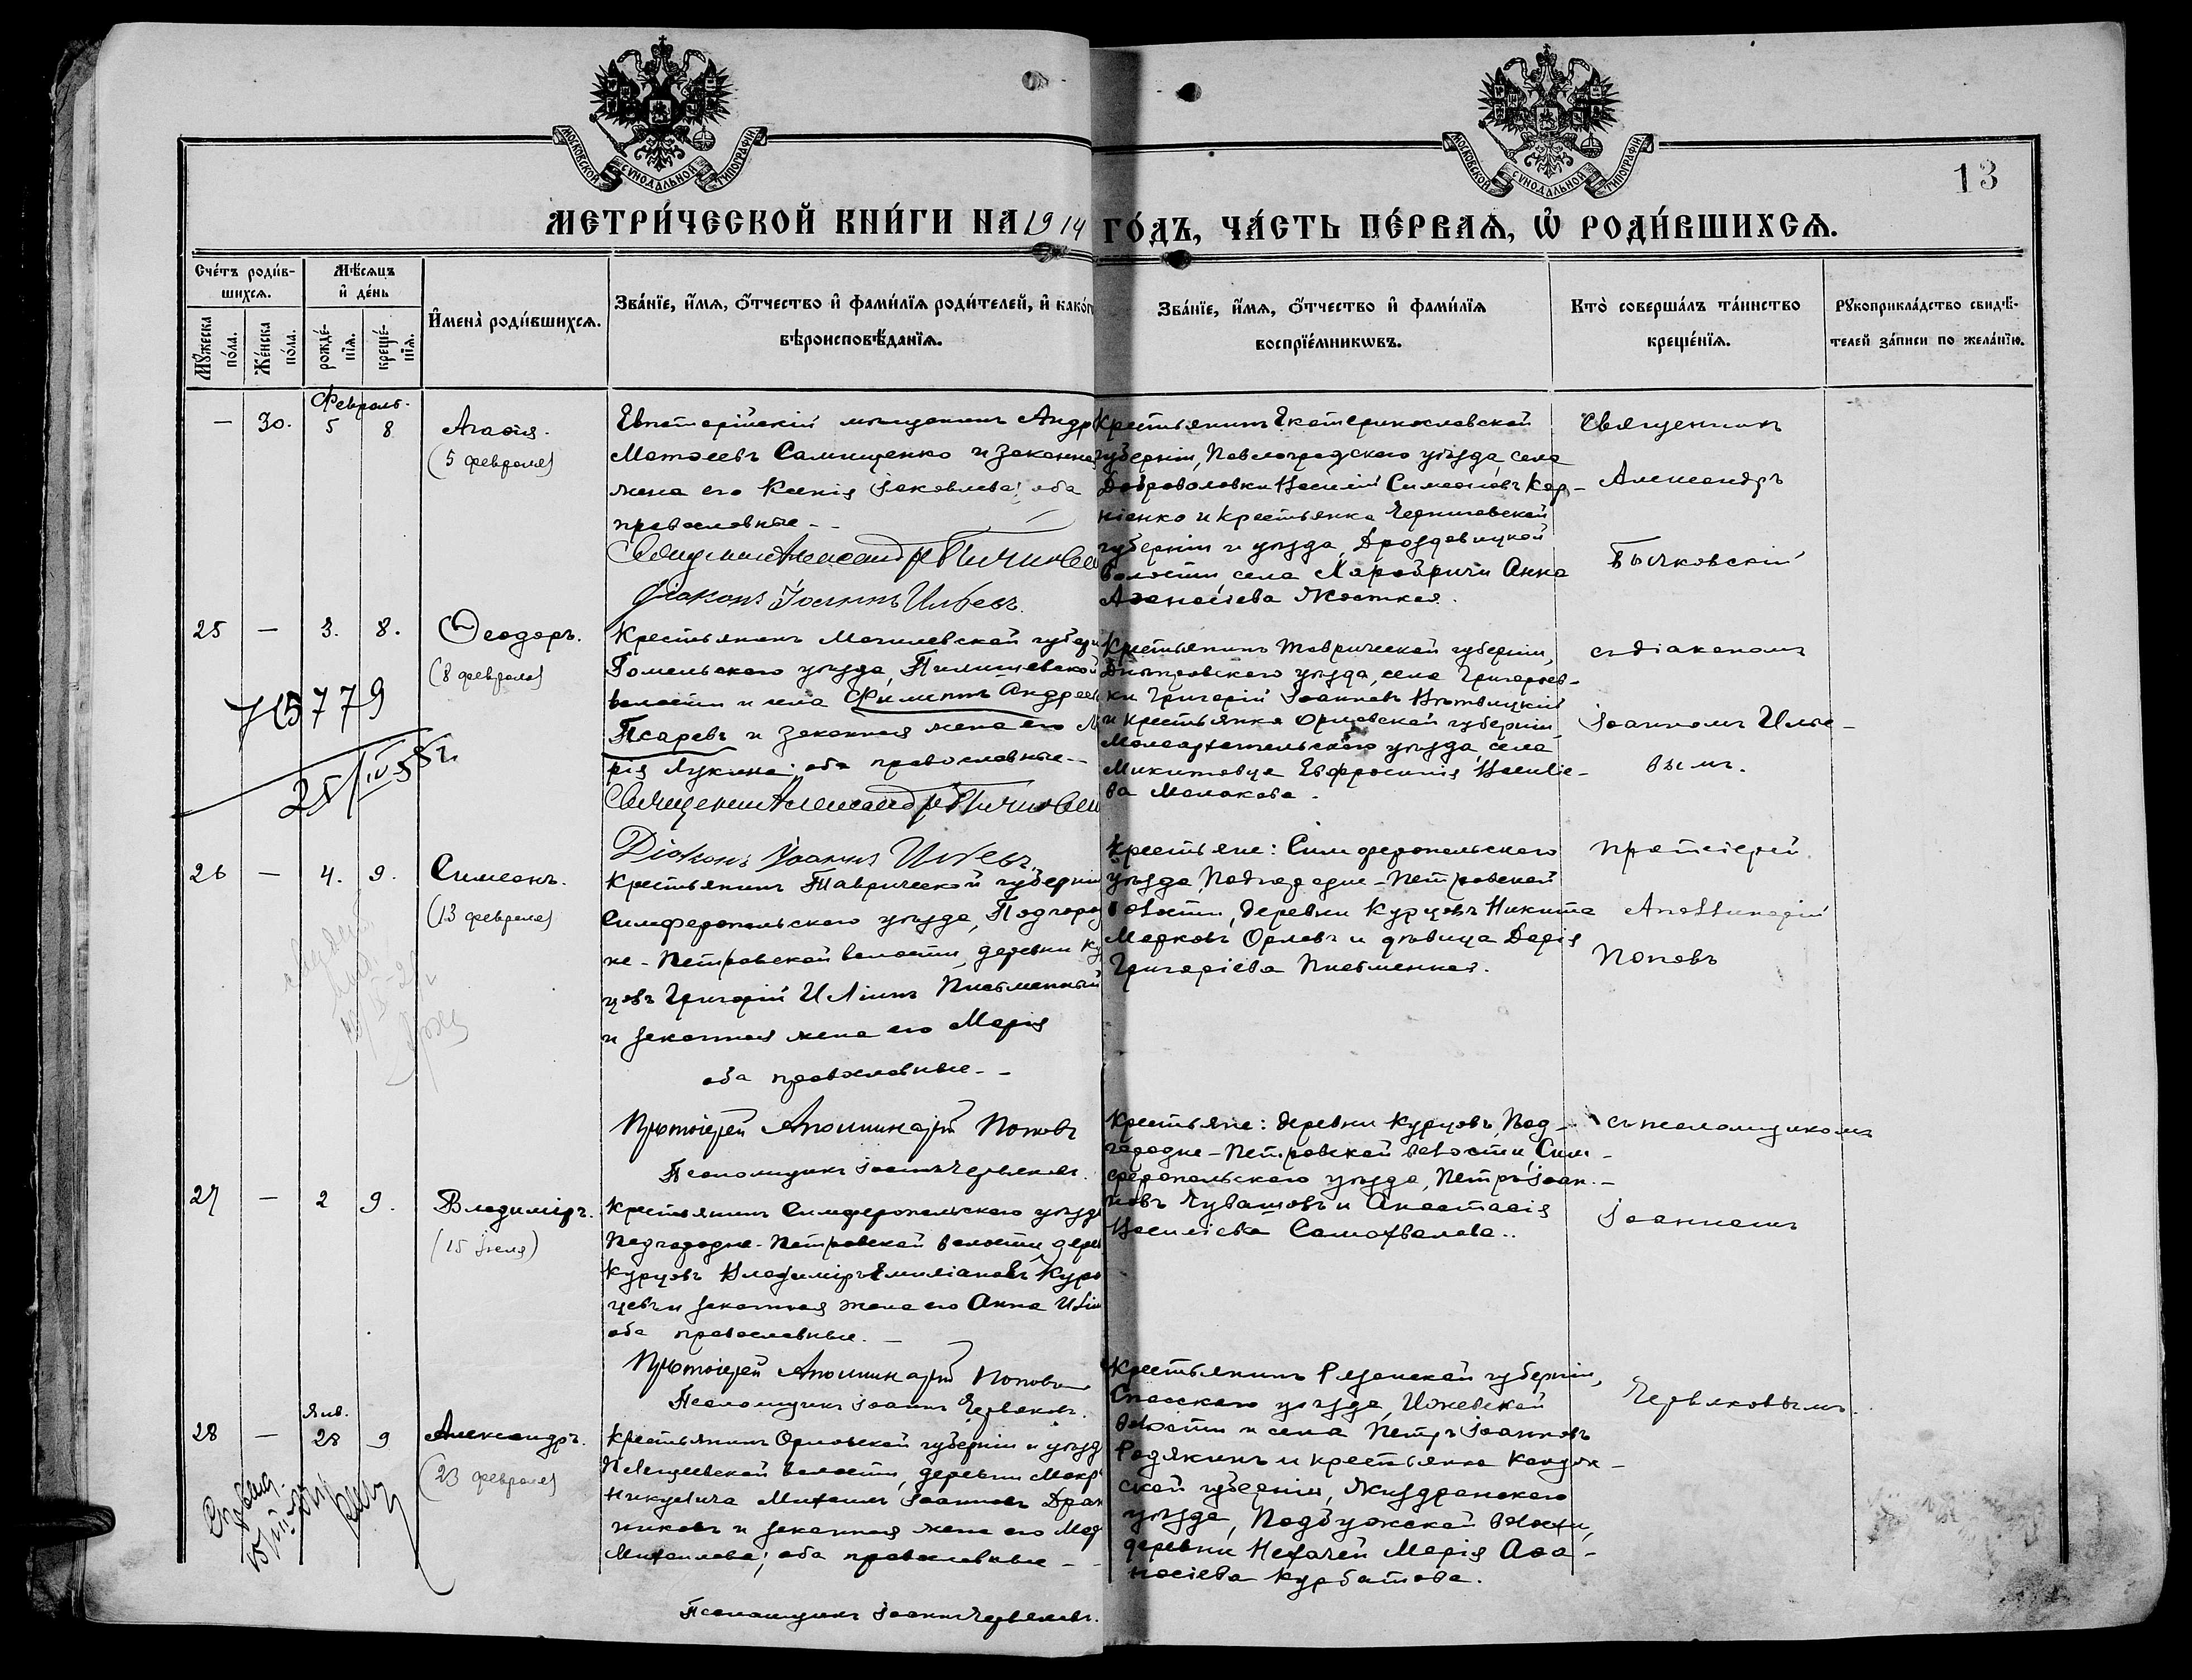 МОСКОВСКОЙ СѴНОДАЛЬНОЙ ТИПОГРАФІИ
МОСКОВСКОЙ СѴНОДАЛЬНОЙ ТИПОГРАФІИ
13
МЕТРИ́ЧЕСКОЙ КНИ́ГИ НА 1914 ГО́ДЪ, ЧА́СТЬ ПЕ́РВАѦ, Ѡ РОДИ́ВШИХСѦ.
Сче́тъ роди́в-
шихсѧ.
Мꙋ́жеска по́ла.
Же́нска по́ла.
Мѣ́сѧцъ
и҆ де́нь
рожде́-нїѧ.
креще́-нїѧ.
И҆мена̀ роди́вшихсѧ.
Зва́нїе, и҆́мѧ, ѻ҆́тчество и҆ фами́лїѧ роди́телей, и҆ како́г
вѣроисповѣ́данїѧ.
Зва́нїе, и҆́мѧ, ѻ҆́тчество и҆ фами́лїѧ
воспрїе́мникѡвъ.
Кто̀ соверша́лъ та́инство
креще́нїѧ.
Рꙋкоприкла́дство свидѣ́-
телей за́писи по жела́нїю.
Февраль.
— 30. 5 8
Агаѳія.
(5 февраля)
Евпаторійскій мѣщанинъ Андр
Матѳеевъ Самищенко и законная
жена его Ксенія Іаковлева; оба
православные. -
Священникъ Александръ Бычковскі
Діаконъ Іоаннъ Ильевъ.
Крестьянинъ Екатеринославской
губерніи, Павлоградскаго уѣзда, села
Доброволовки Василій Симеоновъ Кор-
ніенко и крестьянка Черниговской
губерніи и уѣзда, Дроздовицкой
волости, села Хоробричи Анна
Аѳанасіева Жосткая.
Священникъ
Александръ
Бычковскій
25 — 3. 8.
Ѳеодоръ.
(8 февраля)
715779
25/IV 55 г.
Крестьянинъ Могилевской губерн
Гомельскаго уѣзда,
волости и села Филиппъ Андреев
Псаревъ и законная жена его Ма
рія Лукина; оба православные. -
Священникъ Александръ Бычковскі
Діаконъ Іоаннъ Ильевъ.
Крестьянинъ Таврической губерніи,
Днѣпровскаго уѣзда, села Григорьев-
ки Григорій Іоанновъ
и крестьянка Орловской губерніи
Малоархангельскаго уѣзда, села
Евфросинія Василіе-
ва Малахова.
съ діакономъ
Іоанномъ Илье-
вымъ.
26 — 4. 9.
Симеонъ.
(13 февраля)
Крестьянинъ Таврической губерніи
Симферопольскаго уѣзда, Подгород
не-Петровской волости, деревни Ку
цовъ Григорій Иліинъ Письменный
и законная жена его Марія
оба православные. -
Протоіерей Аполлинарій Поповъ
Псаломщикъ Іоаннъ Червяковъ.
Крестьяне: Симферопольскаго
уѣзда, Подгородне-Петровской
волости, деревни Курцовъ Никита
Марковъ Орловъ и дѣвица Дарія
Григоріева Письменная.
Протоіерей
Аполлинарій
Поповъ
27 — 2 9.
Владиміръ.
(15 іюля)
Крестьянинъ Симферопольскаго уѣзда
Подгородне-Петровской волости, дерев
Курцовъ Владиміръ Емиліановъ Кур
цевъ и законная жена его Анна Иліи
оба православные. —
Протоіерей Аполлинарій Поповъ
Псаломщикъ Іоаннъ Червяковъ.
Крестьяне: деревни Курцовъ, Под-
городне-Петровской волости, Сим-
феропольскаго уѣзда, Петръ Іоан-
новъ Чувашовъ и Анастасія
Василіева Самохвалова.
съ псаломщикомъ
Іоанномъ
Янв.
28 — 28 9
Александръ.
(23 февраля)
Крестьянинъ Орловской губерніи и уѣзд
волости, деревни
Михаилъ Іоанновъ
и законная жена его Мар
Михаилова; оба православные —
Псаломщикъ Іоаннъ Червяковъ.
Крестьянинъ Рязанской губерніи,
Спасскаго уѣзда, Ижевской
волости и села Петръ Іоанновъ
Родякинъ и крестьянка Калуж-
ской губерніи, Жиздринскаго
уѣзда, Подбужской волости,
деревни Нехачей Марія Аѳа-
насіева Курбатова.
Червяковымъ.